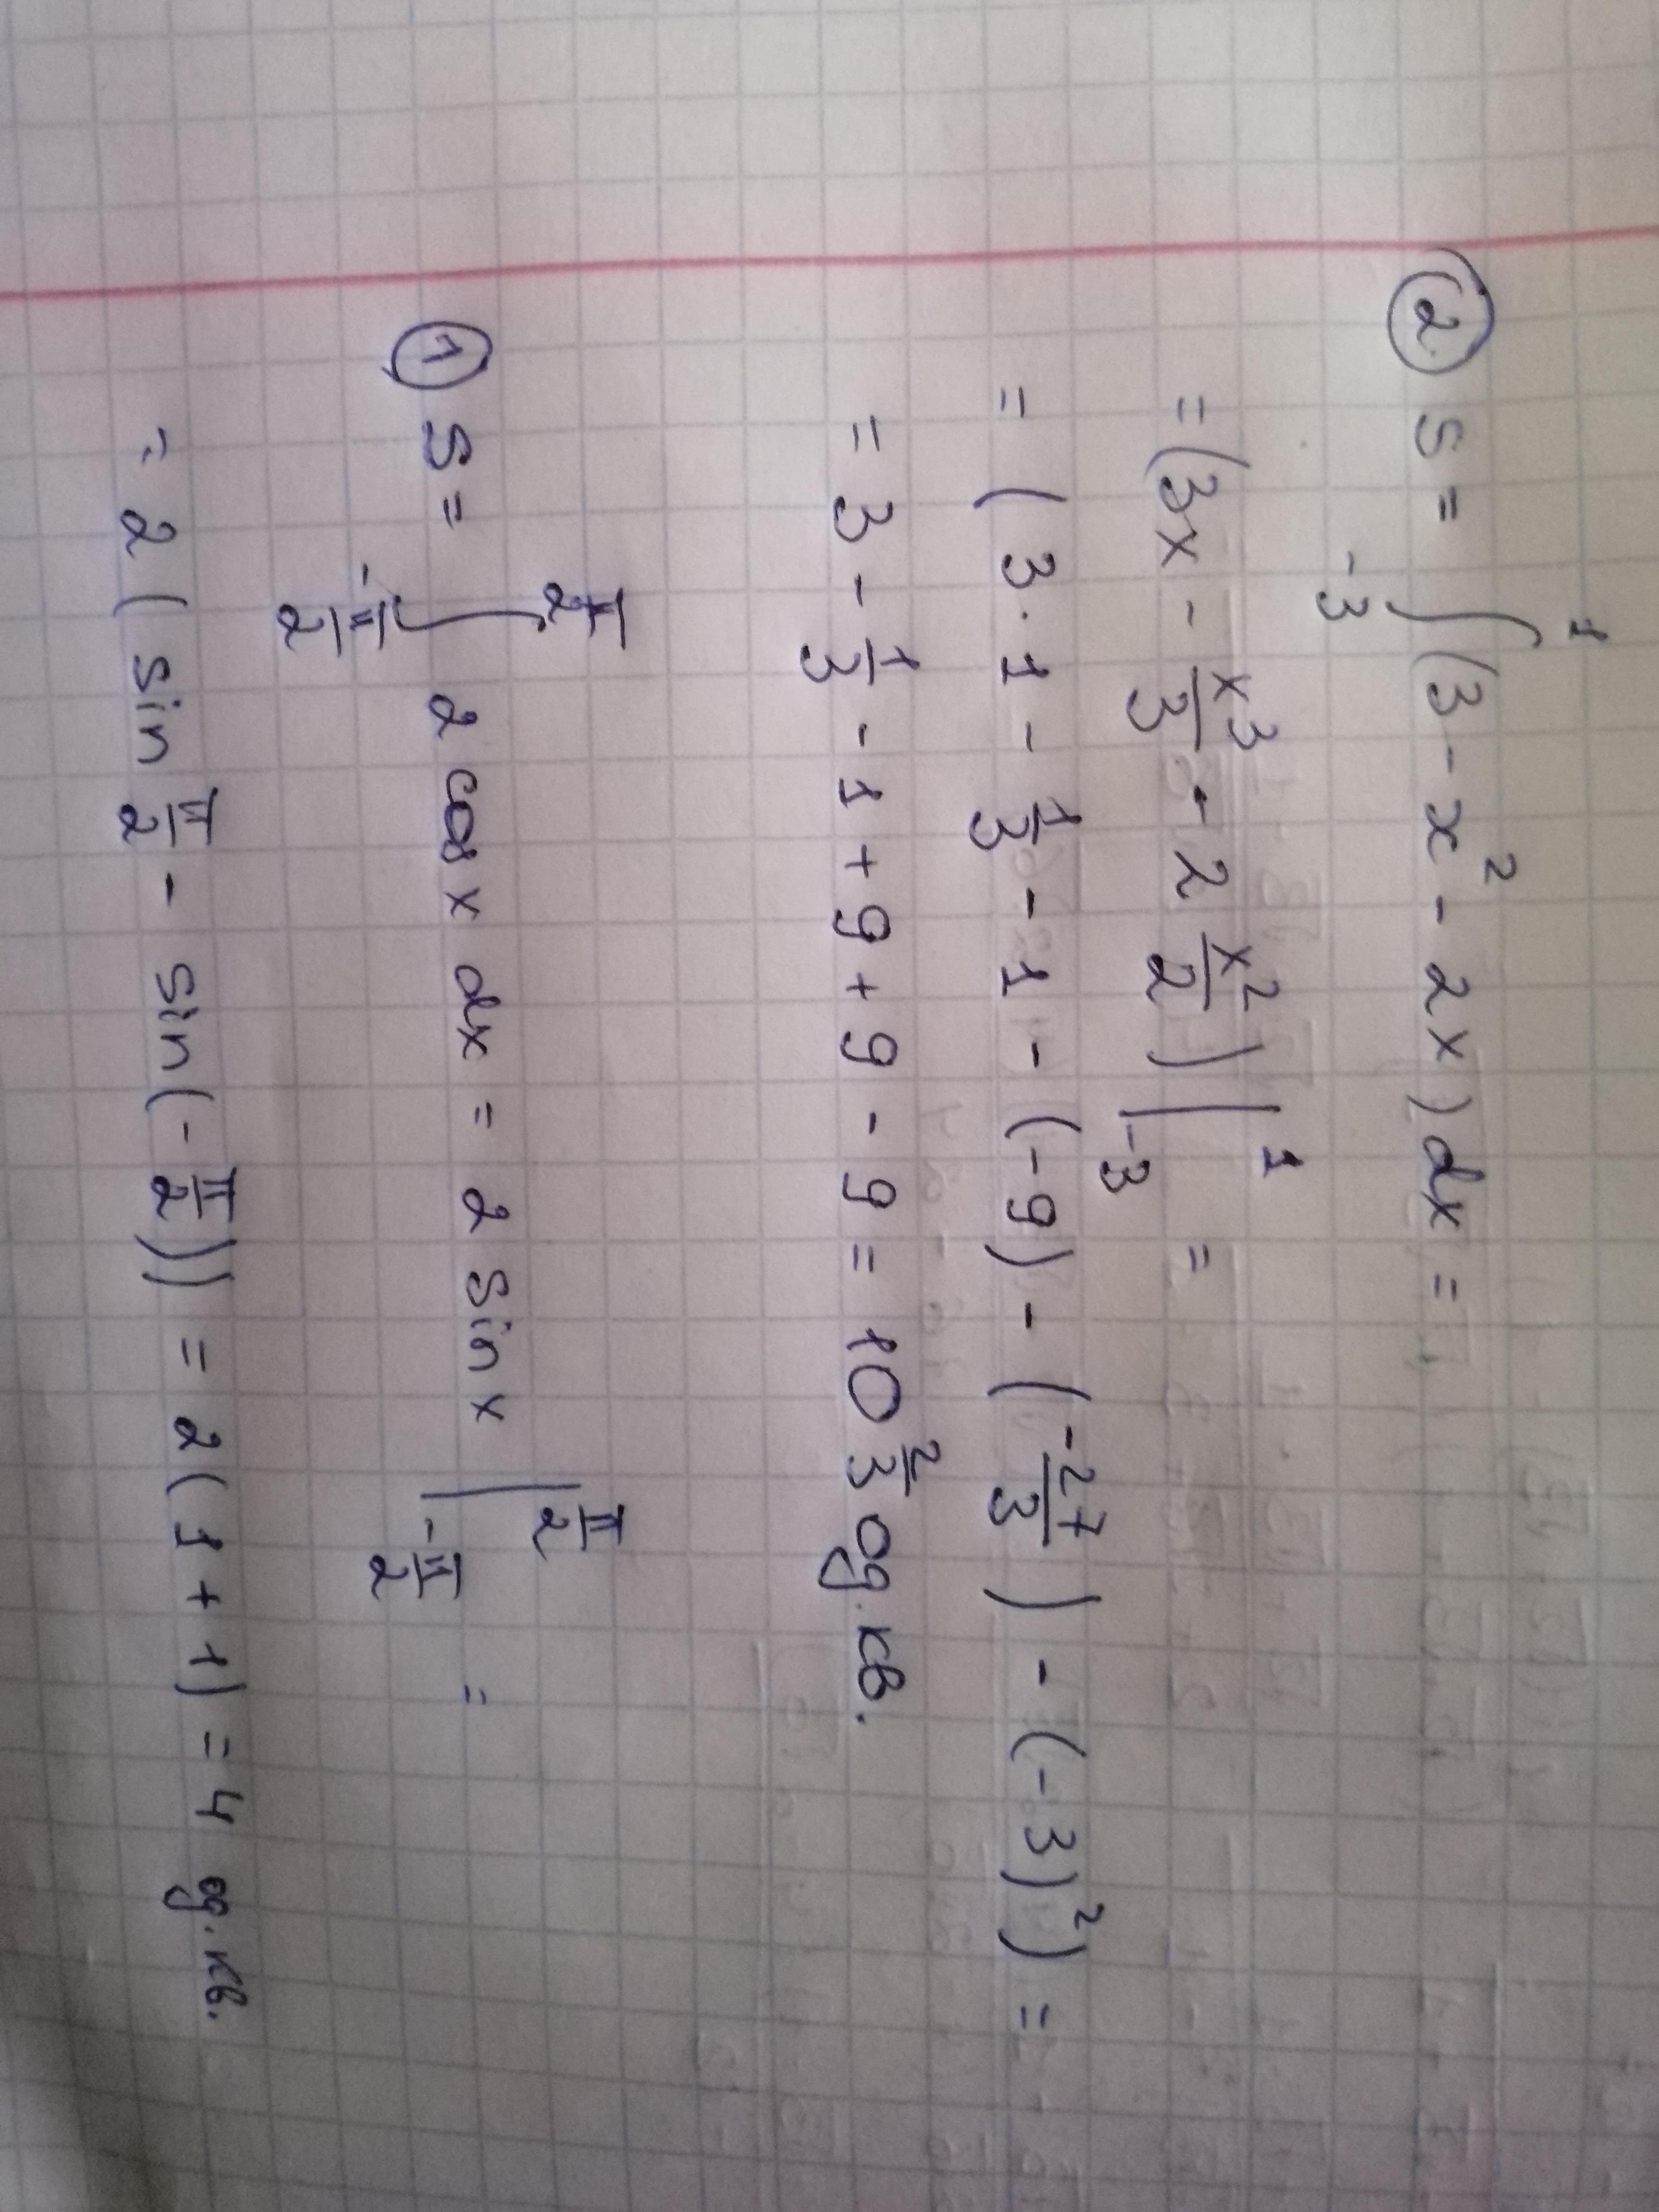 ② S = ∫₋₃¹ (3 - x² - 2x) dx =
= (3x - x³/3 - 2 x²/2) |₋₃¹ =
= (3 · 1 - 1/3 - 1 - (-9) - (-27/3) - (-3)²) =
= 3 - 1/3 - 1 + 9 + 9 - 9 = 10 2/3 од. кв.
① S = ∫_{-π/2}^{π/2} 2 cos x dx = 2 sin x |_{-π/2}^{π/2} =
= 2 (sin π/2 - sin(-π/2)) = 2(1 + 1) = 4 од. кв.